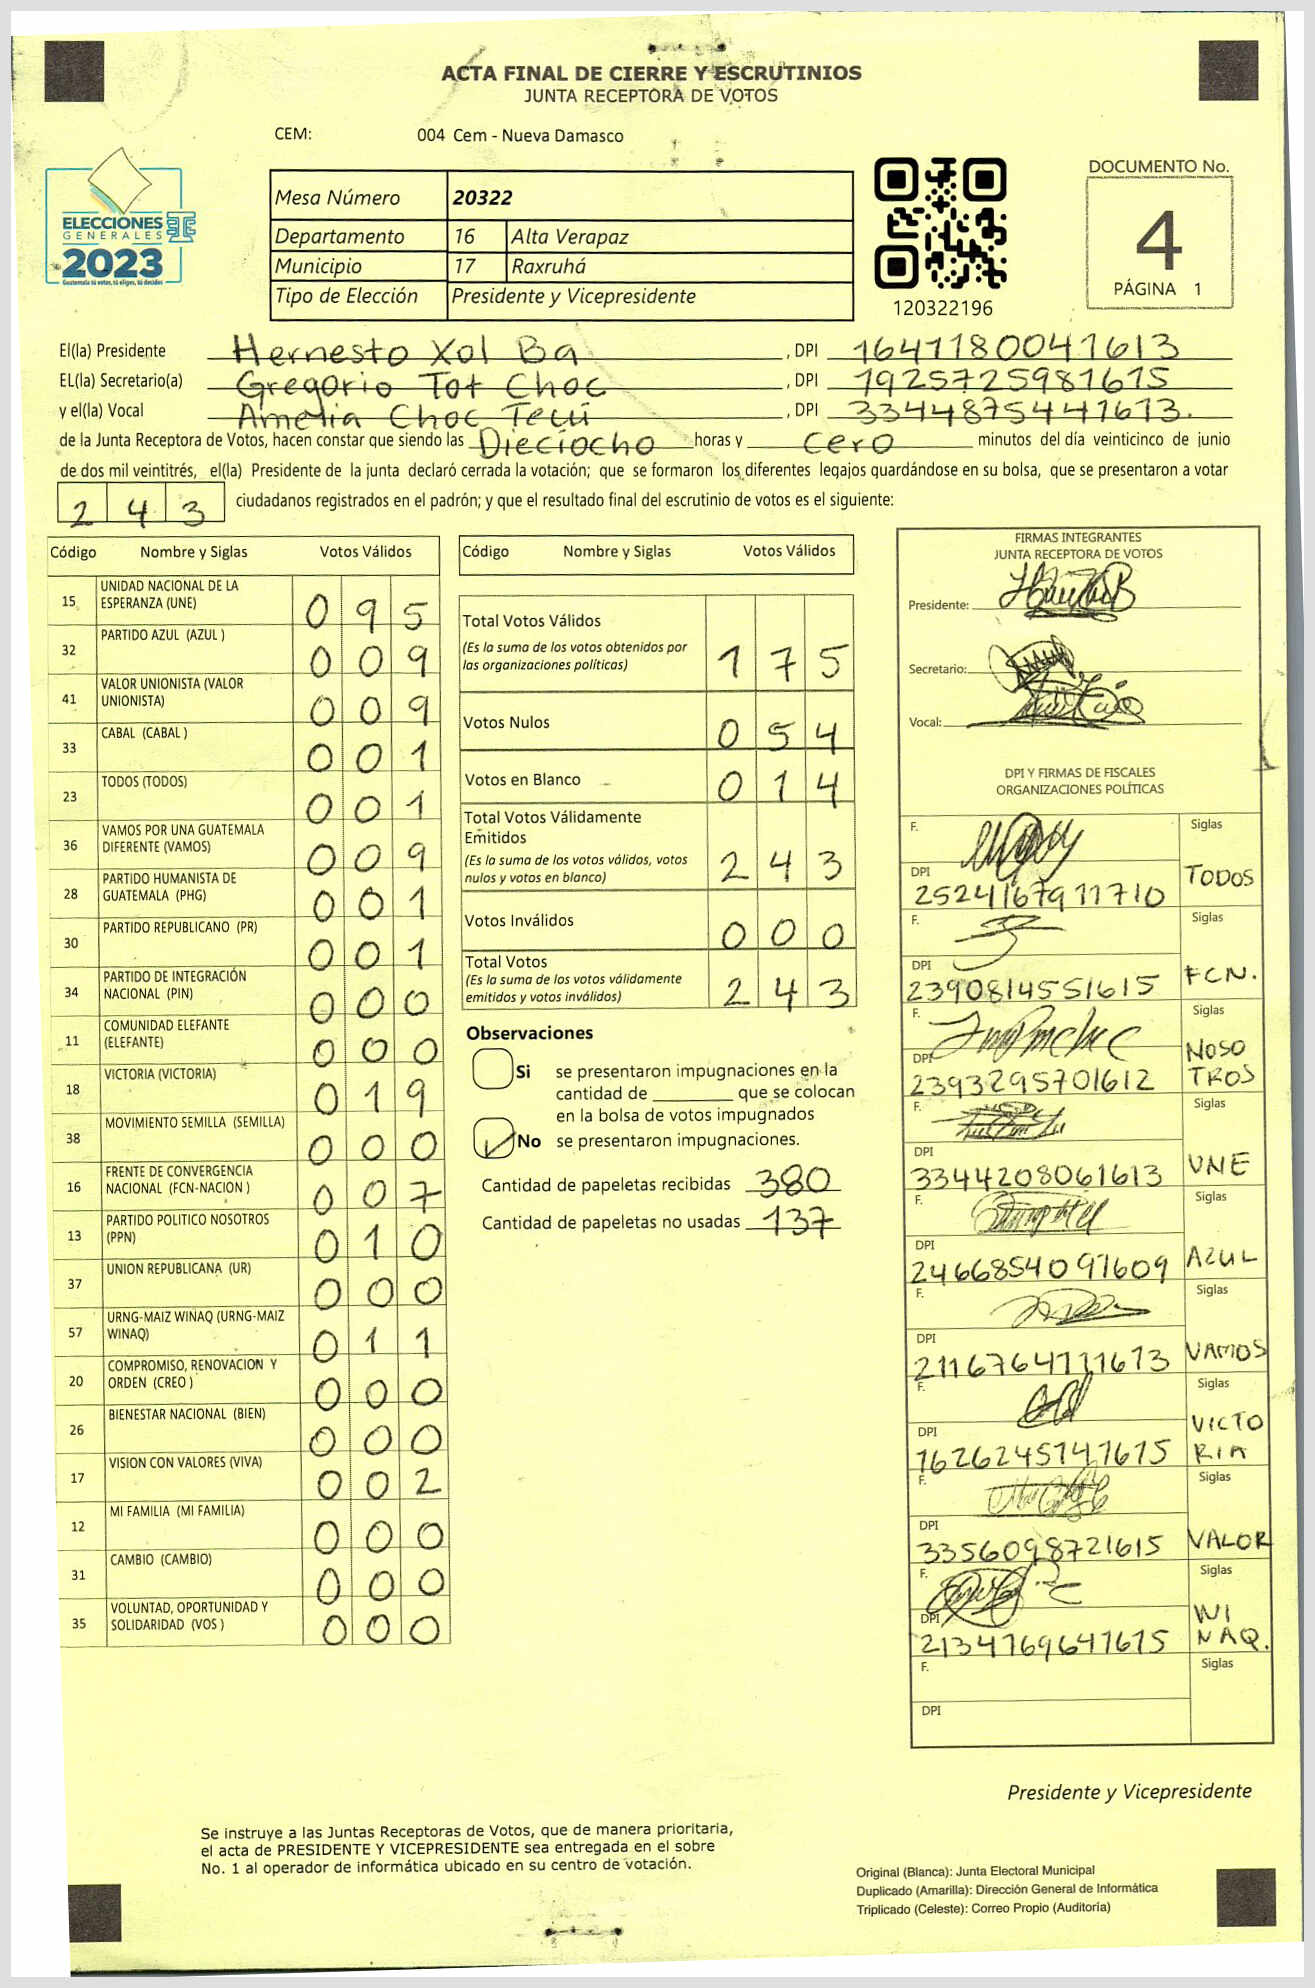 ACTA FINAL DE CIERRE Y ESCRUTINIOS
JUNTA RECEPTORA DE VOTOS
CEM: 004 Cem - Nueva Damasco
ELECCIONES
GENERALES
2023
Guatemala tú votas, tú eliges, tú decides
Mesa Número 20322
Departamento 16 Alta Verapaz
Municipio 17 Raxruhá
Tipo de Elección Presidente y Vicepresidente
120322196
DOCUMENTO No.
4
PÁGINA 1
El(la) Presidente Hernesto Xol Ba , DPI 1641180041613
EL(la) Secretario(a) Gregorio Tot Choc , DPI 1925725981615
y el(la) Vocal Amelia Choc Tecú , DPI 3344875441613.
de la Junta Receptora de Votos, hacen constar que siendo las Dieciocho horas y cero minutos del día veinticinco de junio
de dos mil veintitrés, el(la) Presidente de la junta declaró cerrada la votación; que se formaron los diferentes legajos quardándose en su bolsa, que se presentaron a votar
2 4 3 ciudadanos registrados en el padrón; y que el resultado final del escrutinio de votos es el siguiente:
Código Nombre y Siglas Votos Válidos
15 UNIDAD NACIONAL DE LA
ESPERANZA (UNE) 0 9 5
32 PARTIDO AZUL (AZUL ) 0 0 9
41 VALOR UNIONISTA (VALOR
UNIONISTA) 0 0 9
33 CABAL (CABAL ) 0 0 1
23 TODOS (TODOS) 0 0 1
36 VAMOS POR UNA GUATEMALA
DIFERENTE (VAMOS) 0 0 9
28 PARTIDO HUMANISTA DE
GUATEMALA (PHG) 0 0 1
30 PARTIDO REPUBLICANO (PR) 0 0 1
34 PARTIDO DE INTEGRACIÓN
NACIONAL (PIN) 0 0 0
11 COMUNIDAD ELEFANTE
(ELEFANTE) 0 0 0
18 VICTORIA (VICTORIA) 0 1 9
38 MOVIMIENTO SEMILLA (SEMILLA) 0 0 0
16 FRENTE DE CONVERGENCIA
NACIONAL (FCN-NACION ) 0 0 7
13 PARTIDO POLITICO NOSOTROS
(PPN) 0 1 0
37 UNION REPUBLICANA (UR) 0 0 0
57 URNG-MAIZ WINAQ (URNG-MAIZ
WINAQ) 0 1 1
20 COMPROMISO, RENOVACION Y
ORDEN (CREO ) 0 0 0
26 BIENESTAR NACIONAL (BIEN) 0 0 0
17 VISION CON VALORES (VIVA) 0 0 2
12 MI FAMILIA (MI FAMILIA) 0 0 0
31 CAMBIO (CAMBIO) 0 0 0
35 VOLUNTAD, OPORTUNIDAD Y
SOLIDARIDAD (VOS ) 0 0 0
Código Nombre y Siglas Votos Válidos
Total Votos Válidos
(Es la suma de los votos obtenidos por
las organizaciones políticas) 1 7 5
Votos Nulos 0 5 4
Votos en Blanco 0 1 4
Total Votos Válidamente
Emitidos
(Es la suma de los votos válidos, votos
nulos y votos en blanco) 2 4 3
Votos Inválidos 0 0 0
Total Votos
(Es la suma de los votos válidamente
emitidos y votos inválidos) 2 4 3
Observaciones
Si se presentaron impugnaciones en la
cantidad de ________ que se colocan
en la bolsa de votos impugnados
No se presentaron impugnaciones.
Cantidad de papeletas recibidas 380
Cantidad de papeletas no usadas 137
FIRMAS INTEGRANTES
JUNTA RECEPTORA DE VOTOS
Presidente:
Secretario:
Vocal:
DPI Y FIRMAS DE FISCALES
ORGANIZACIONES POLÍTICAS
F. Siglas
DPI TODOS
2524167911710
F. Siglas
DPI FCN.
2390814551615
F. Siglas
DPI NOSO
2393295701612 TROS
F. Siglas
DPI UNE
3344208061613
F. Siglas
DPI AZUL
2466854091609
F. Siglas
DPI VAMOS
2116764111613
F. Siglas
DPI VICTO
1626245141615 RIA
F. Siglas
DPI VALOR
3356098721615
F. Siglas
DPI WI
2134169641615 NAQ.
F. Siglas
DPI
Presidente y Vicepresidente
Se instruye a las Juntas Receptoras de Votos, que de manera prioritaria,
el acta de PRESIDENTE Y VICEPRESIDENTE sea entregada en el sobre
No. 1 al operador de informática ubicado en su centro de votación.
Original (Blanca): Junta Electoral Municipal
Duplicado (Amarilla): Dirección General de Informática
Triplicado (Celeste): Correo Propio (Auditoría)